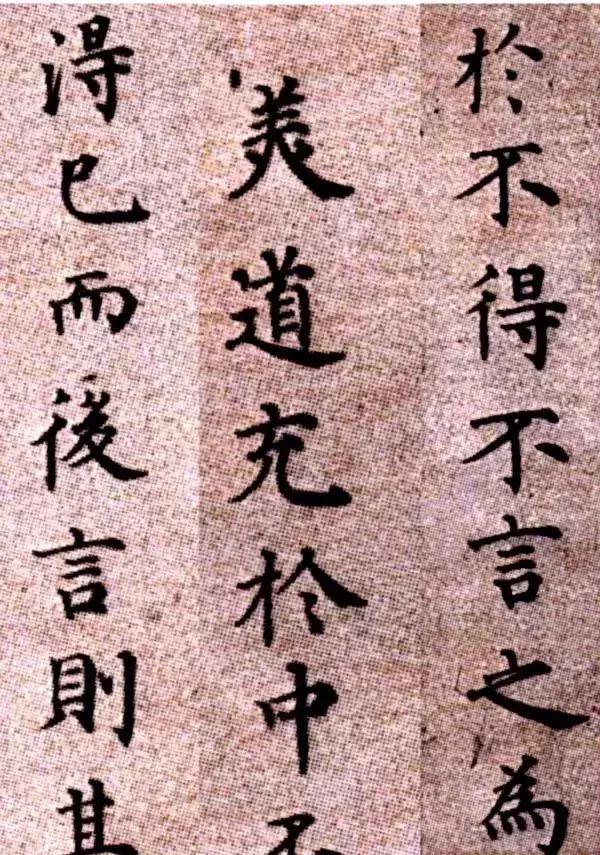 於不得不言之為
美道充於中不
得已而後言則其